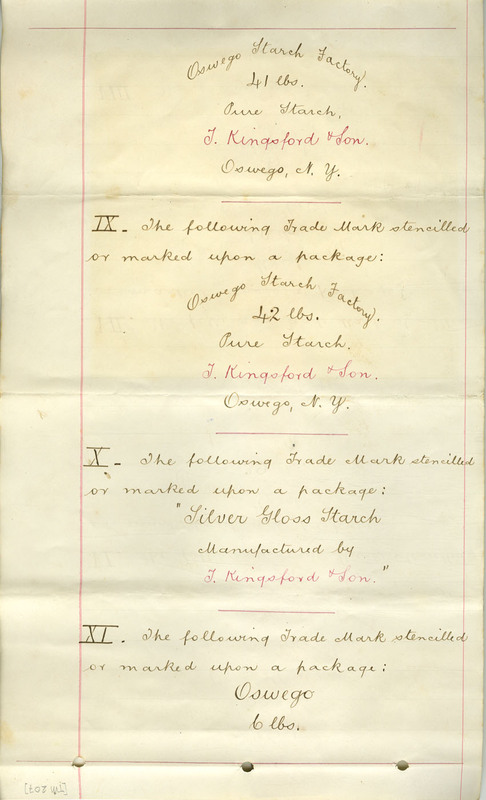 Oswego Starch Factory.
41 lbs.
Pure Starch,
T. Kingsford & Son.
Oswego, N. Y.
IX - The following Trade Mark stencilled
or marked upon a package:
Oswego Starch Factory.
42 lbs.
Pure Starch.
T. Kingsford & Son.
Oswego, N. Y.
X - The following Trade Mark stencilled
or marked upon a package:
"Silver Gloss Starch
Manufactured by
T. Kingsford & Son."
XI. The following Trade Mark stencilled
or marked upon a package:
Oswego
6 lbs.
[TM 207]